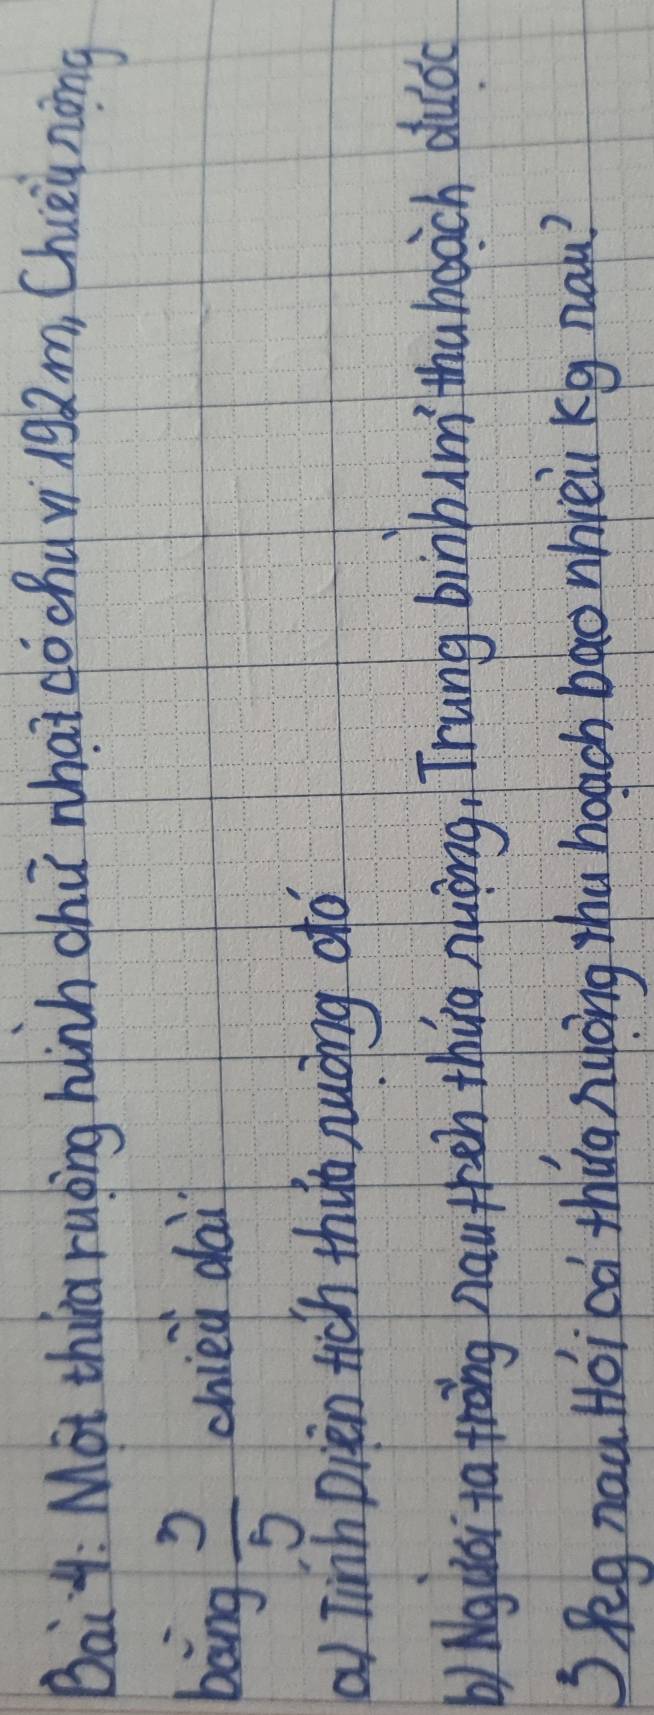 Bài 4: Một thửa ruộng hình chữ nhật có chu vi 192m, Chiều rộng
bằng 3/5 chiều dài.
a) Tính Diện tích thửa ruộng đó
b) Người ta trồng rau trên thửa ruộng, Trung bình 1m² thu hoạch được
3 kg rau. Hỏi cả thửa ruộng thu hoạch bao nhiêu kg rau?